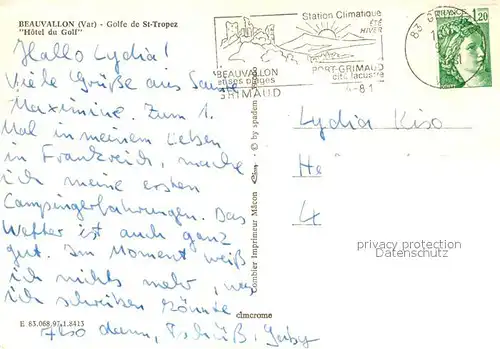 BEAUVALLON (Var) - Golfe de St-Tropez
"Hôtel du Golf"
Hallo Lydia!
Viele Grüße aus Sainte
Maximine. Zum 1.
Mal in meinem Leben
in Frankreich, mache
ich meine ersten
Campingerfahrungen. Das
Wetter ist auch ganz
gut. Im Moment weiß
ich nichts mehr, was
ich schreiben könnte
Also dann, Tschüß, Gaby
E 83.068.97.1.8413
Combier Imprimeur Mâcon
© by spadem
cimcrome
Station Climatique
ÉTÉ
HIVER
BEAUVALLON
ses plages
PORT-GRIMAUD
cité lacustre
GRIMAUD
4-81
83 G
1,20
Lydia
He
4
privacy protection
Datenschutz